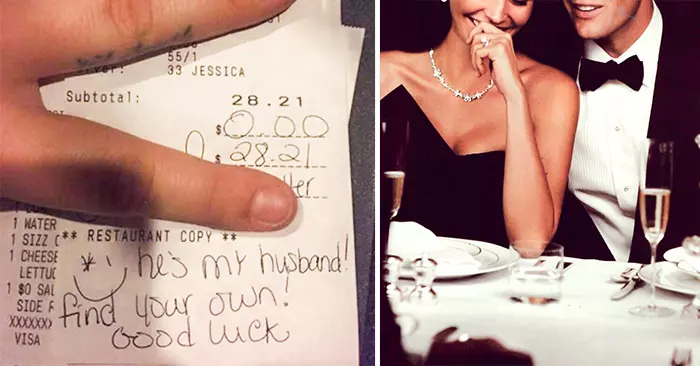 55/1
33 JESSICA
Subtotal: 28.21
$ 0.00
$ 28.21
1 WATER
** RESTAURANT COPY **
1 SIZZ
1 CHEESE
he's my husband!
LETTU
1 $0 SAL
find your own!
SIDE
Good luck
VISA